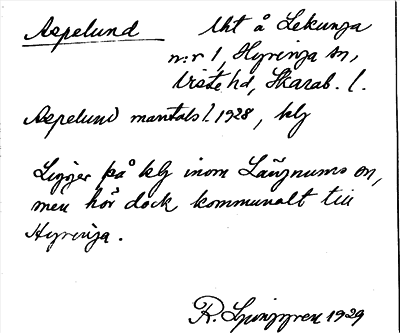 Aspelund Uht å Lekunga
n:r 1, Hyringa sn,
Viste hd, Skarab. l.
Aspelund mantals l. 1928, klg
Ligger på klg inom Längnums sn,
men hör dock kommunalt till
Hyringa.
R. Ljunggren 1929